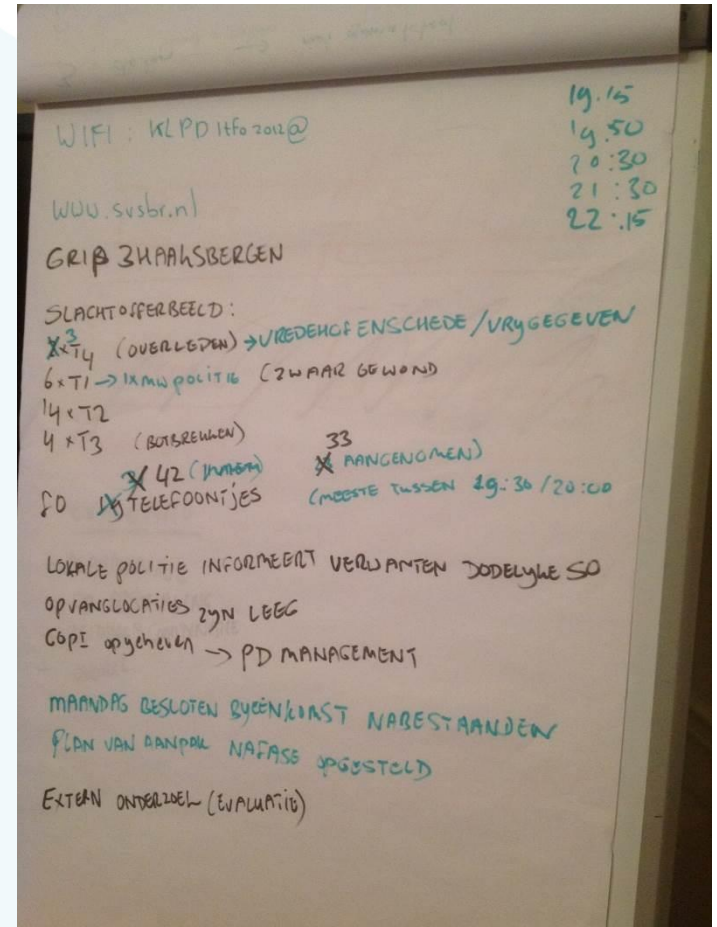 19.15
WIFI : KLPD Itfo 2012@
19.50
20:30
21:30
www.svsbr.nl
22:.15
GRIP 3 HAAKSBERGEN
SLACHTOFFERBEELD:
3xT4 (OVERLEDEN) → VREDEHOF ENSCHEDE / VRYGEGEVEN
6xT1 → 1X MW POLITIE (ZWAAR GEWOND
14xT2
4xT3 (BOTBREUKEN)
33
42 AANGENOMEN)
50 TELEFOONTJES (MEESTE TUSSEN 19:30 / 20:00
LOKALE POLITIE INFORMEERT VERWANTEN DODELYKE SO
OPVANGLOCATIES ZYN LEEG
COPI opgeheven → PD MANAGEMENT
MAANDAG BESLOTEN BYEENKOMST NABESTAANDEN
PLAN VAN AANPAK NAFASE OPGESTELD
EXTERN ONDERZOEK (EVALUATIE)